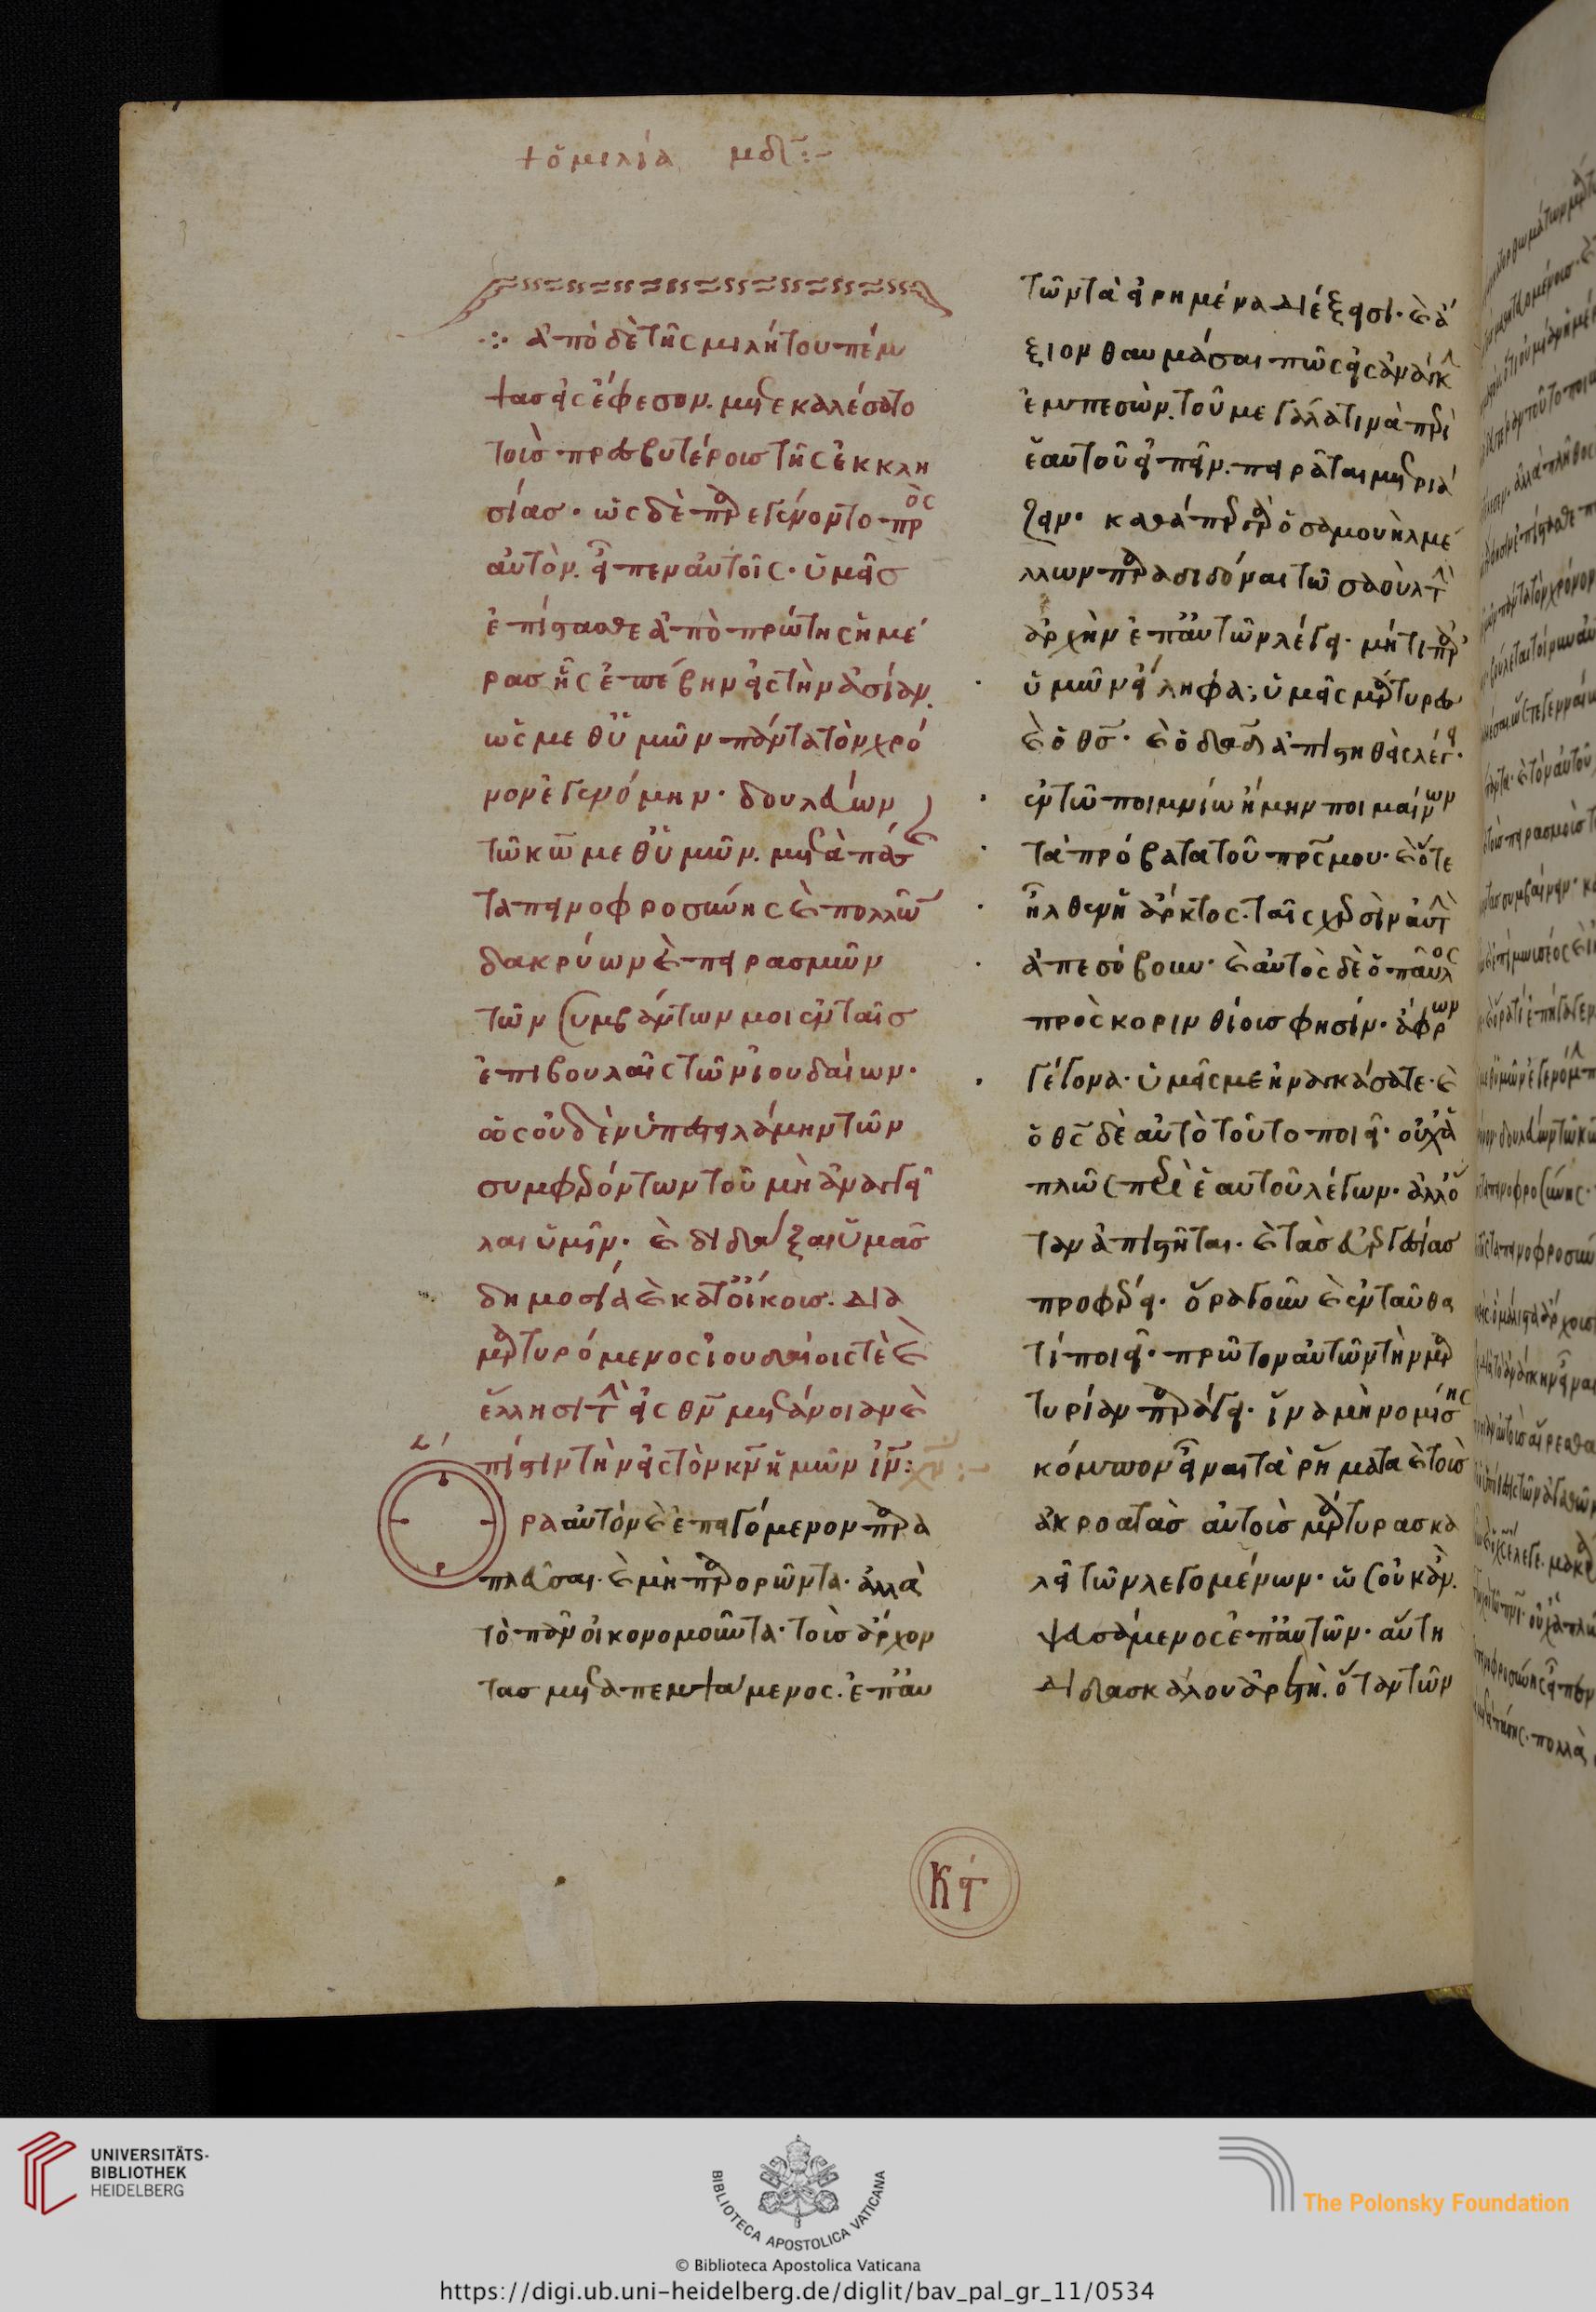 + ὁμιλία μδ:-
∴ ἀπὸ δὲ τῆς μιλήτου πέμ
ψας εἰς ἔφεσον. μετεκαλέσατο
τοὺς πρεσβυτέρους τῆς ἐκκλη
σίας. ὡς δὲ παρεγένοντο πρὸς
αὐτὸν. εἶπεν αὐτοῖς. ὑμεῖς
ἐπίστασθε ἀπὸ πρώτης ἡμέ
ρας ἧς ἐπέβην εἰς τὴν ἀσίαν.
ὡς μεθ ὑμῶν πάντα τὸν χρό
νον ἐγενόμην. δουλεύων
τῶ κω μεθ ὑμῶν. μετὰ πάσης
ταπεινοφροσύνης καὶ πολλῶν
δακρύων καὶ πειρασμῶν
τῶν συμβάντων μοι ἐν ταῖς
ἐπιβουλαῖς τῶν ἰουδαίων.
ὡς οὐδὲν ὑπεστειλάμην τῶν
συμφερόντων τοῦ μὴ ἀναγγεῖ
λαι ὑμῖν. καὶ διδάξαι ὑμᾶς
δημοσία καὶ κατ οἴκους. δια
μαρτυρόμενος ἰουδαίοις τὲ καὶ
ἕλλησι τὴν εἰς θν μετάνοιαν καὶ
πίστιν τὴν εἰς τὸν κν ἡμῶν ιν χν:-
Ορα αὐτὸν καὶ ἐπειγόμενον παρα
πλεῦσαι. καὶ μὴ παρορῶντα. ἀλλὰ
τὸ πᾶν οἰκονομοῦντα. τοὺς ἄρχον
τας μεταπεμψάμενος. ἐπ αὐ
τῶν τὰ εἰρημένα διέξεισι. καὶ ἄ
ξιον θαυμάσαι πῶς εἰς ἀνάγκην
ἐμπεσὼν. τοῦ μεγάλα τινὰ περὶ
ἑαυτοῦ εἰπεῖν. πειρᾶται μετριά
ζειν. καθάπερ γὰρ ὁ σαμουὴλ μέ
λλων παραδιδόναι τῶ σαοὺλ τὴν
ἀρχὴν ἐπ αὐτῶν λέγει. μή τι παρ
ὑμῶν εἴληφα; ὑμεῖς μάρτυρες
καὶ ὁ θς. καὶ ὁ δαδ ἀπιστηθεὶς λέγει.
ἐν τῶ ποιμνίω ἤμην ποιμαίνων
τὰ πρόβατα τοῦ πρς μου. καὶ ὅτε
ἦλθεν ἡ ἄρκτος. ταῖς χερσὶν αὐτὴν
ἀπεσόβουν. καὶ αὐτὸς δὲ ὁ παῦλος
πρὸς κορινθίοις φησίν. ἄφρων
γέγονα. ὑμεῖς με ἠναγκάσατε. καὶ
ὁ θς δὲ αὐτὸ τοῦτο ποιεῖ. οὐχ ἁ
πλῶς περὶ ἑαυτοῦ λέγων. ἀλλ ὅ
ταν ἀπιστῆται. καὶ τὰς εὐεργεσίας
προφέρει. ὅρα γοῦν καὶ ἐνταῦθα
τί ποιεῖ. πρῶτον αὐτῶν τὴν μαρ
τυρίαν παράγει. ἵνα μὴ νομίσης
κόμπον εἶναι τὰ ρήματα καὶ τοὺς
ἀκροατὰς αὐτοὺς μάρτυρας κα
λεῖ τῶν λεγομένων. ὡς οὐκ ἂν.
ψευσάμενος ἐπ αὐτῶν. αὕτη
διδασκάλου ἀρετὴ. ὅταν τῶν
UNIVERSITÄTS-
BIBLIOTHEK
HEIDELBERG
BIBLIOTECA APOSTOLICA VATICANA
© Biblioteca Apostolica Vaticana
The Polonsky Foundation
https://digi.ub.uni-heidelberg.de/diglit/bav_pal_gr_11/0534